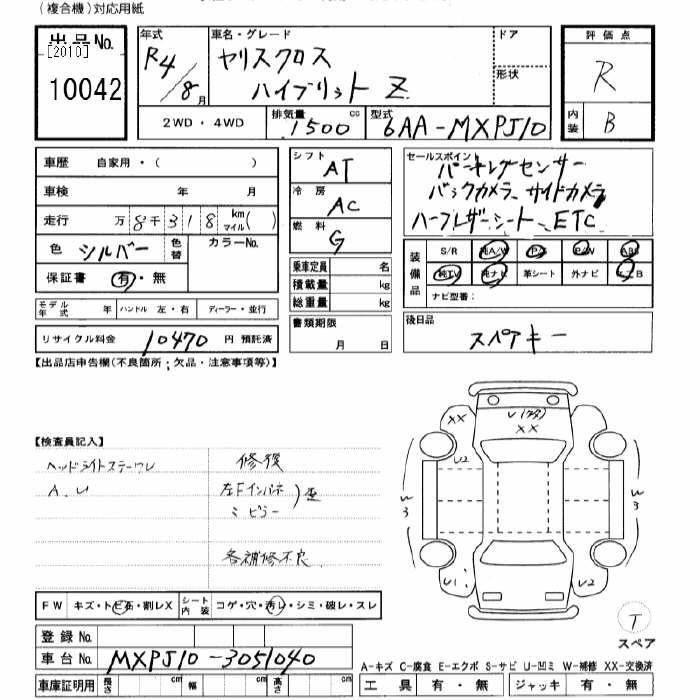 (複合機)対応用紙
出品No.
[2010]
10042
年式
R4/8月
車名・グレード
ヤリスクロス
ハイブリット Z
ドア
形状
評価点
R
内装
B
2WD・4WD
排気量
1500 cc
型式
6AA-MXPJ10
車歴 自家用・( )
車検 年 月
走行 万 8千318 km マイル( )
色 シルバー 色替
カラーNo.
保証書 有・無
モデル年式 年
ハンドル 左・右
ディーラー・並行
リサイクル料金 10470 円 預託済
シフト
AT
冷房
AC
燃料
G
乗車定員 名
積載量 kg
総重量 kg
書類期限
月 日
セールスポイント
パーキングセンサー
バックカメラ、サイドカメラ
ハーフレザーシート、ETC
装備品
S/R 純A/W P/S P/W ABS
純TV 純ナビ 革シート 外ナビ エアB
ナビ型番:
後日品
スペアキー
【出品店申告欄(不良箇所;欠品・注意事項等)】
【検査員記入】
ヘッドライトステーワレ
A.U
修復
左Fインパネ
ピラー
歪
各補修不良
XX
XX
U2
W3
W3
U1
U2
T
スペア
FW キズ・トビ石・割レX
シート内装 コゲ・穴・汚レ・シミ・破レ・スレ
登録No.
車台No. MXPJ10-3051040
車庫証明用 長さ cm 幅 cm 高さ cm
A-キズ C-腐食 E-エクボ S-サビ U-凹ミ W-補修 XX-交換済
工具 有・無 ジャッキ 有・無